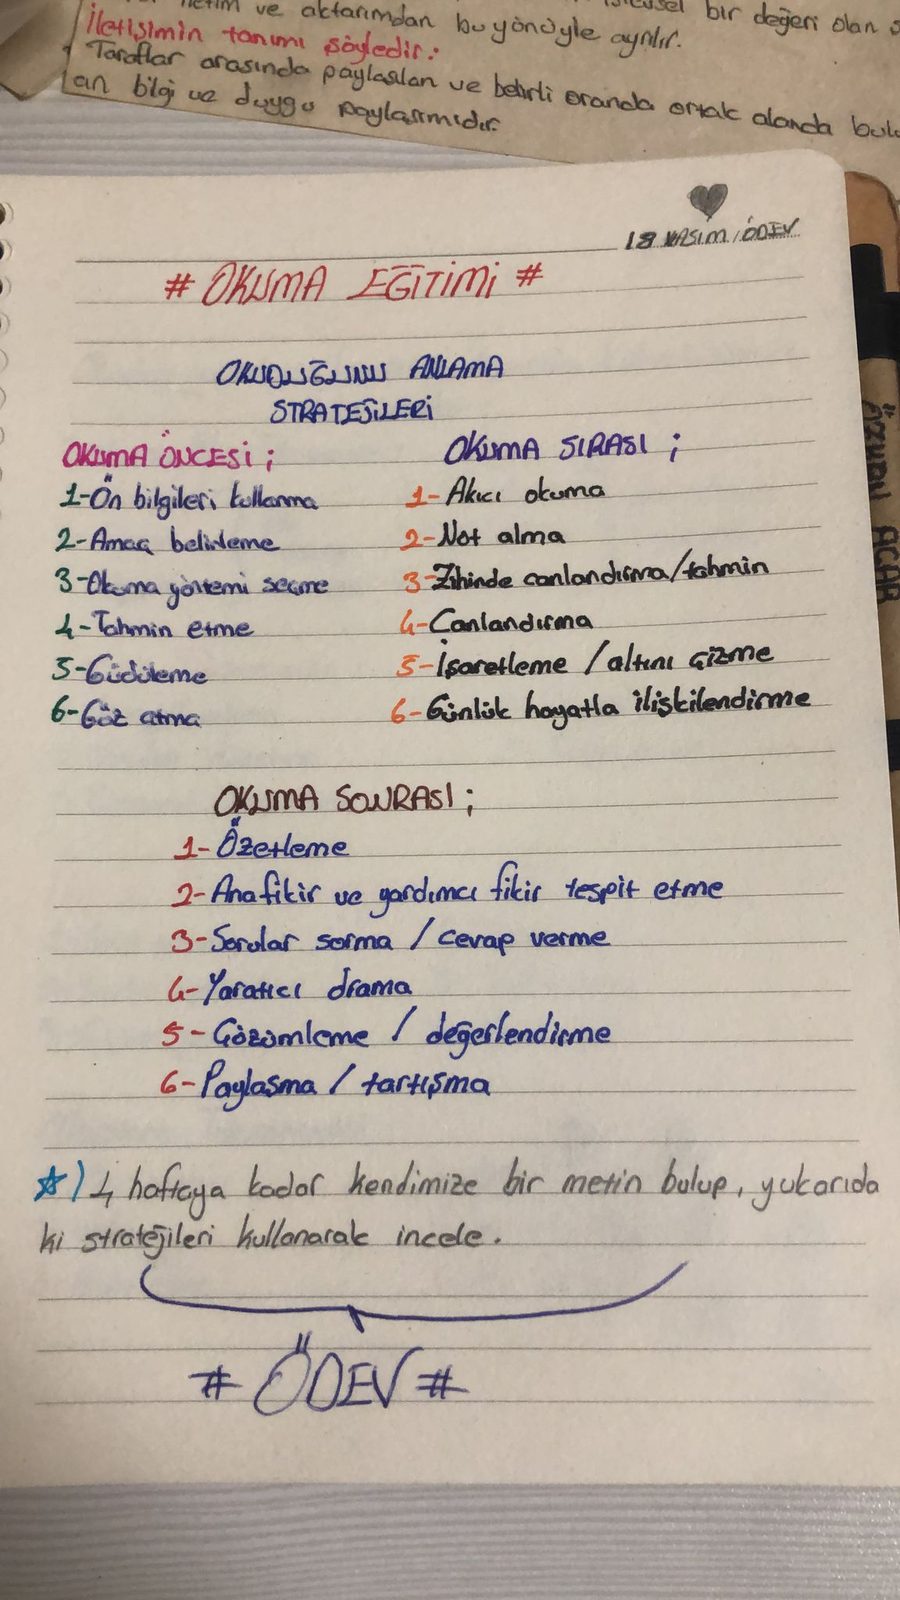 iletim ve aktarımdan bu yönüyle ayrılır.
bir değeri olan
İletişimin tanımı şöyledir:
Taraflar arasında paylaşılan ve belirli oranda ortak alanda bulu
an bilgi ve duygu paylaşımıdır.
18 KASIM / ÖDEV
# OKUMA EĞİTİMİ #
OKUDUĞUNU ANLAMA
STRATEJİLERİ
OKUMA ÖNCESİ ;
1-Ön bilgileri kullanma
2-Amaç belirleme
3-Okuma yöntemi seçme
4-Tahmin etme
5-Güdüleme
6-Göz atma
OKUMA SIRASI ;
1-Akıcı okuma
2-Not alma
3-Zihinde canlandırma/tahmin
4-Canlandırma
5-İşaretleme / altını çizme
6-Günlük hayatla ilişkilendirme
OKUMA SONRASI ;
1-Özetleme
2-Anafikir ve yardımcı fikir tespit etme
3-Sorular sorma / cevap verme
4-Yaratıcı drama
5-Çözümleme / değerlendirme
6-Paylaşma / tartışma
☆) 4 haftaya kadar kendimize bir metin bulup, yukarıda
ki stratejileri kullanarak incele.
# ÖDEV #